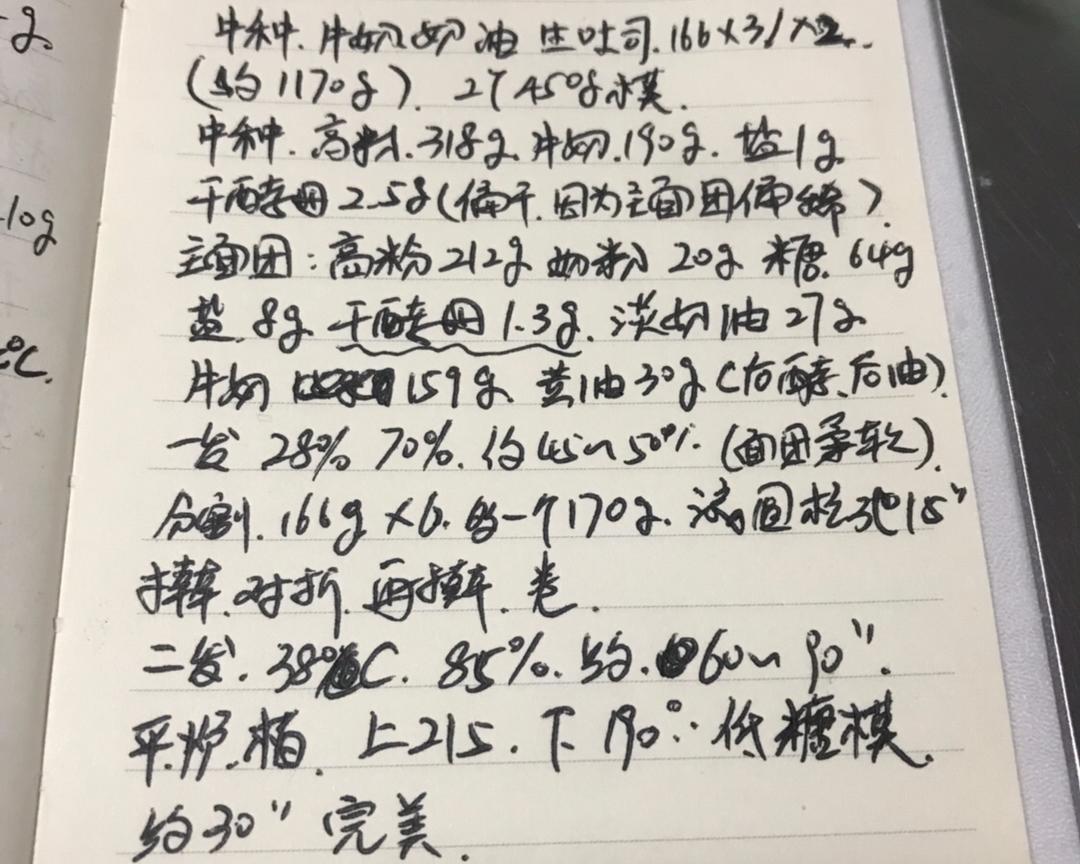 g.
10g
℃.
中种.牛奶奶油生吐司.166×3/×2.
(约1170g). 2个450g模.
中种.高粉.318g.牛奶.190g.盐1g
干酵母2.5g(偏干.因为主面团偏稀).
主面团:高粉212g 奶粉20g 糖.64g
盐.8g.干酵母1.3g.淡奶油27g
牛奶 159g.黄油30g(后酵.后油).
一发 28% 70%.约45~50%.(面团柔软).
分割.166g×6.约一个170g.滚圆松弛15"
擀.对折.再擀.卷.
二发.38°C. 85%.约.60~90".
平炉.柏.上215.下190°.低糖模.
约30" 完美.